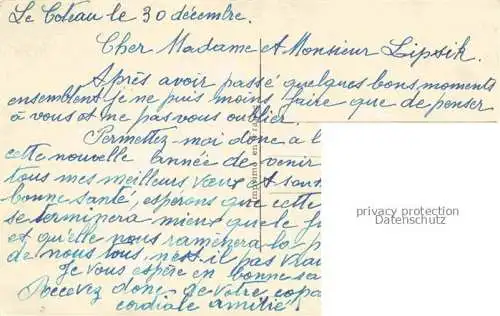 Le Coteau le 30 décembre.
Cher Madame et Monsieur Lipsik.
Après avoir passé quelques bons moments
ensemblent je ne puis moins faire que de penser
à vous et ne pas vous oublier.
Permettez-moi donc a l
cette nouvelle année de venir
tous mes meilleurs vœux et
bonne santé, esperons que cette
se terminera mieux que le
et qu'elle nous ramènera la p
de nous tous, n'est-il pas vrai
Je vous espère en bonne sa
Recevez donc de votre copa
cordiale amitié
privacy protection
Datenschutz